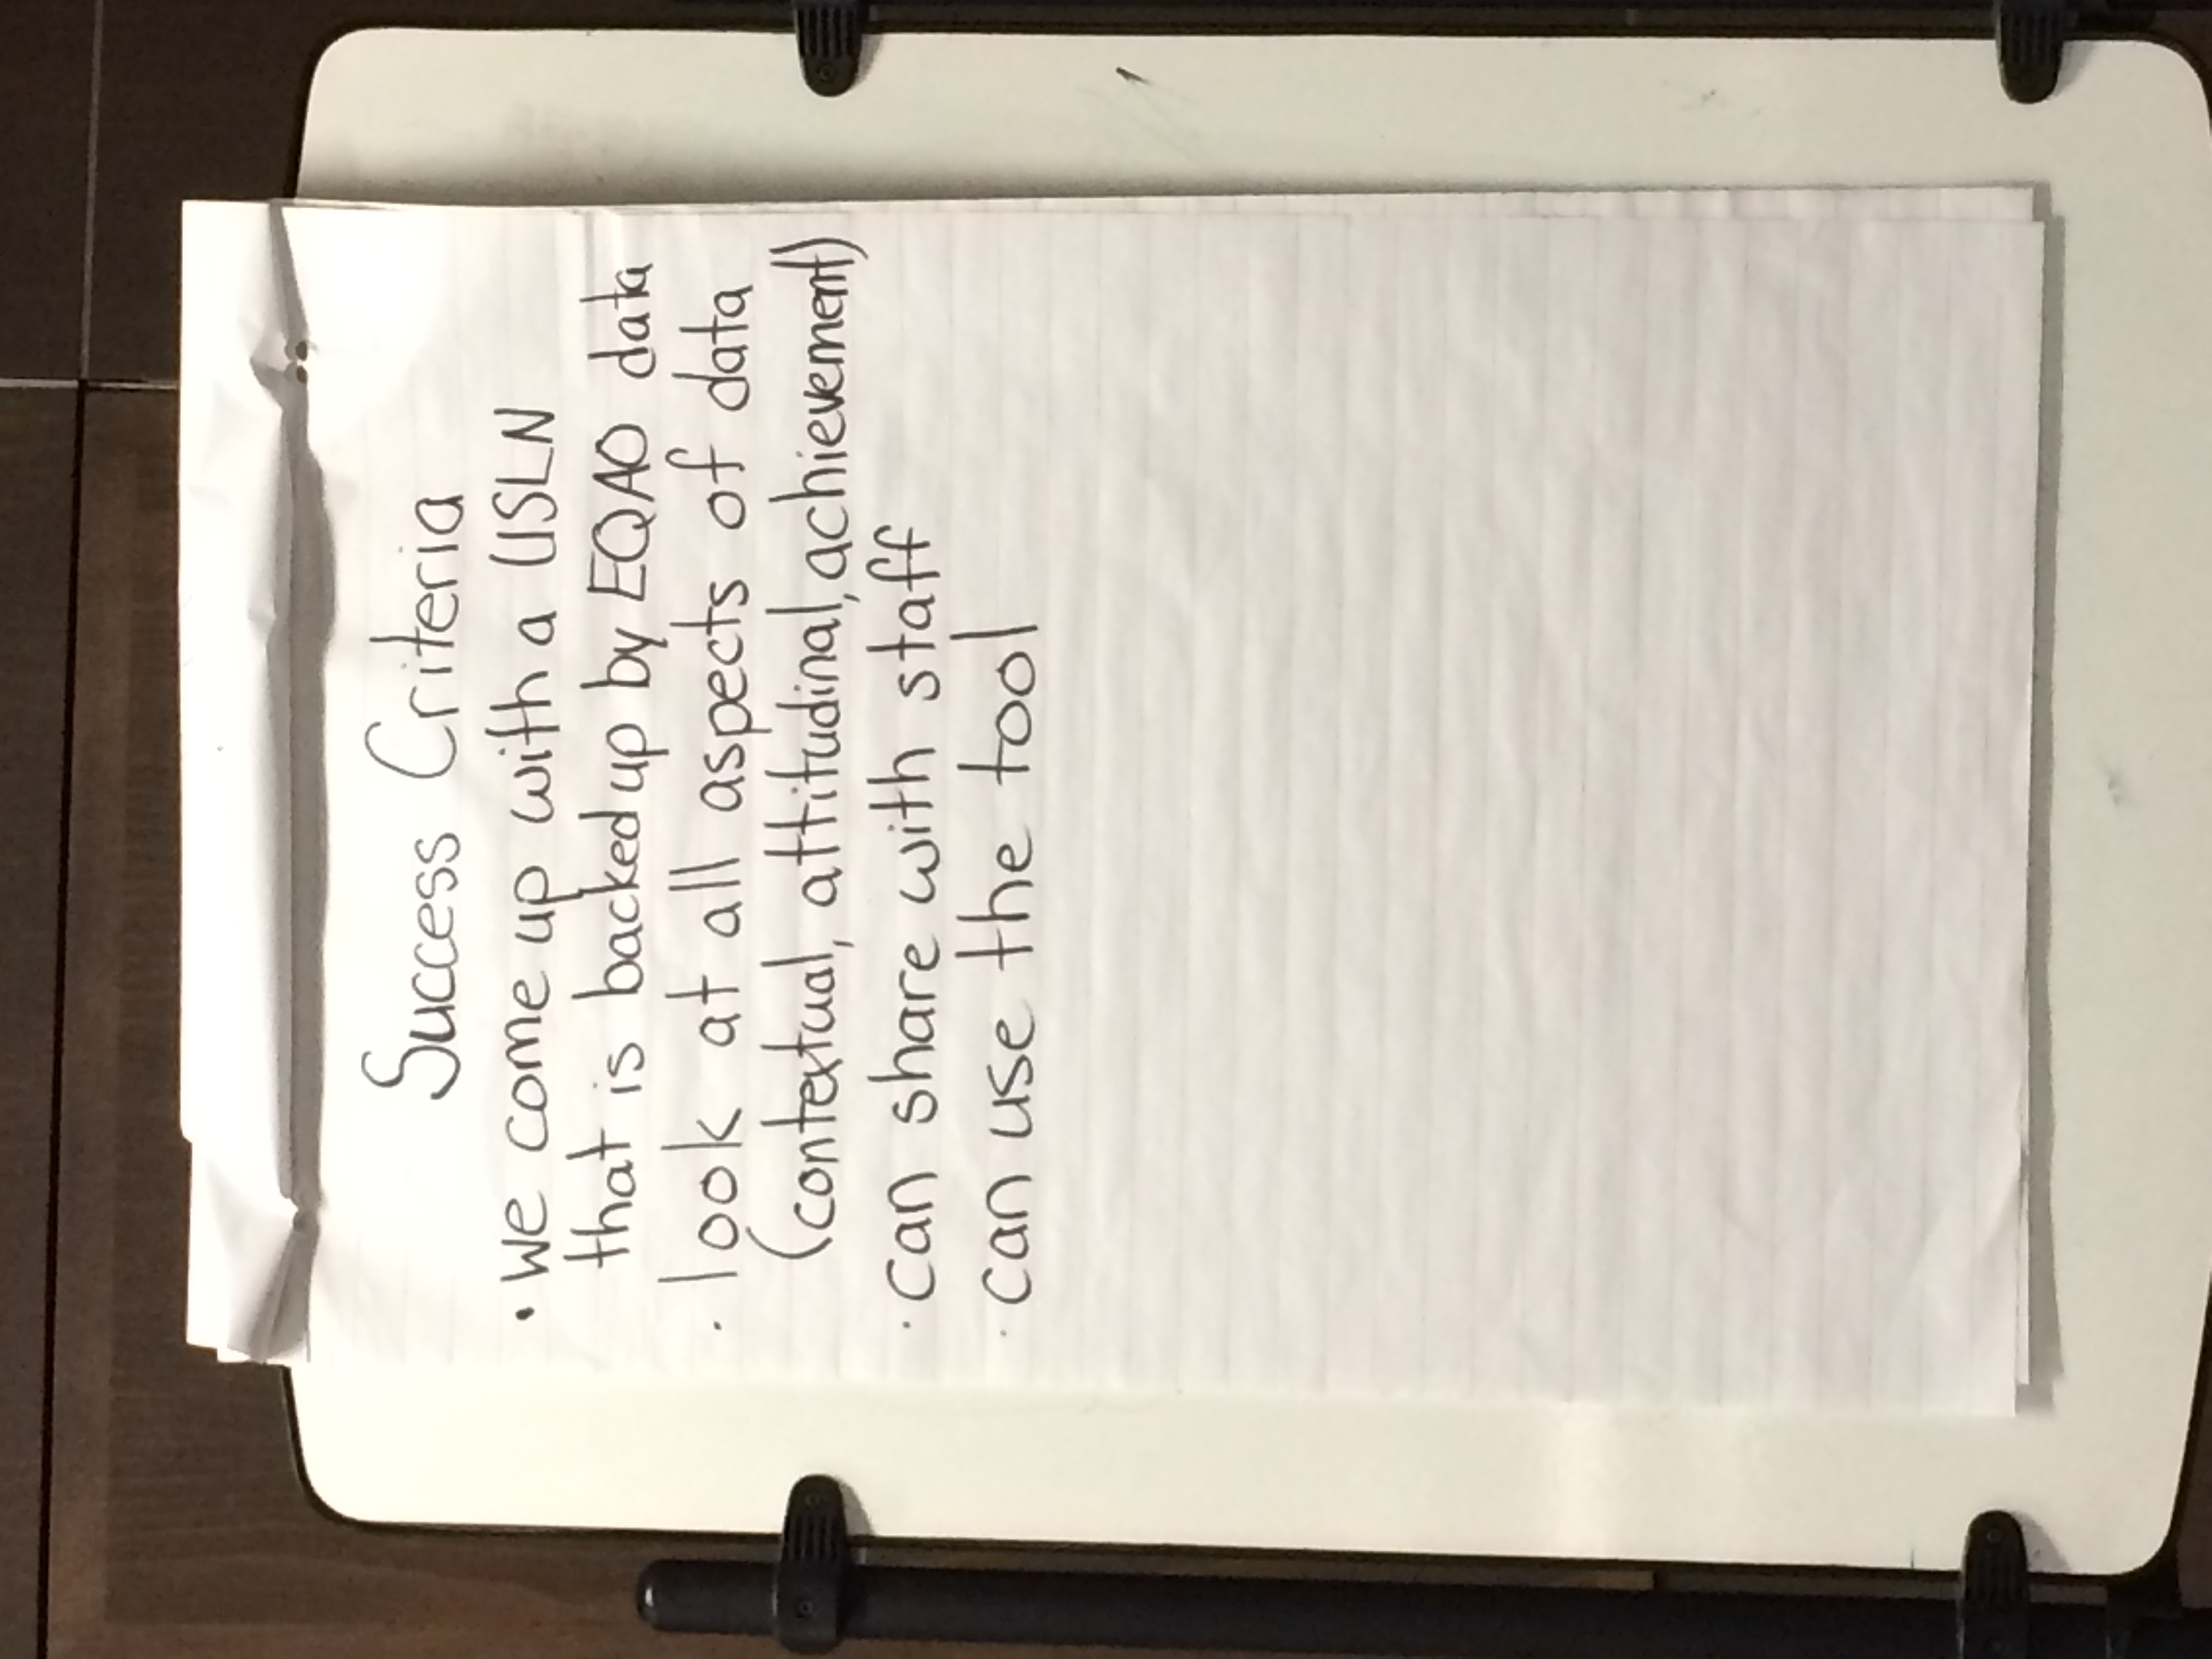 Success Criteria
• We come up with a USLN
that is backed up by EQAO data
· look at all aspects of data
(contextual, attitudinal, achievement)
· can share with staff
· can use the tool